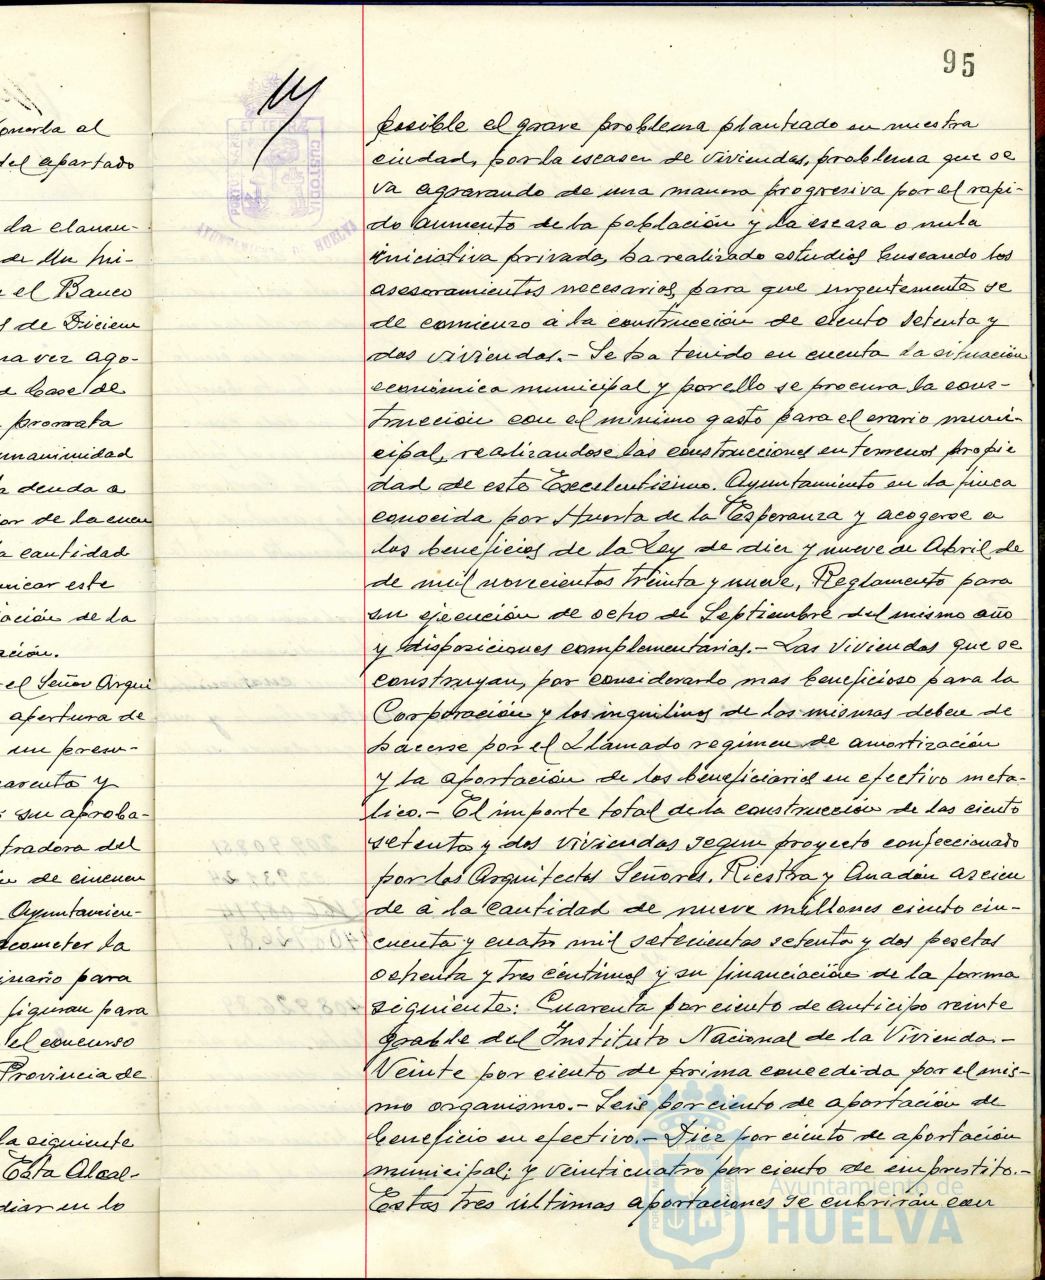 95
onerla al
del apartado
la clausu-
de Un mi-
n el Banco
s de Diciem
na vez ago-
a base de
prorrata
unanimidad
la deuda a
or de la cuen
a cantidad
unicar este
iación de la
ación.
el Señor Arqui
apertura de
un presu-
uarenta y
su aproba-
tradora del
de cincuen
Ayuntamien-
acometer la
inario para
figuran para
el concurso
Provincia de
la siguiente
Esta Alcal-
diar en lo
posible el grave problema planteado en nuestra
ciudad, por la escasez de viviendas, problema que se
va agravando de una manera progresiva por el rapi-
do aumento de la población y la escasa o nula
iniciativa privada, ha realizado estudios buscando los
asesoramientos necesarios, para que urgentemente se
de comienzo á la construcción de ciento setenta y
dos viviendas.- Se ha tenido en cuenta la situación
económica municipal y por ello se procura la cons-
trucción con el mínimo gasto para el erario muni-
cipal, realizandose las construcciones en terrenos propie
dad de este Excelentisimo. Ayuntamiento en la finca
conocida por Huerta de la Esperanza y acogerse a
los beneficios de la Ley de diez y nueve de Abril de
de mil novecientos treinta y nueve, Reglamento para
su ejecución de ocho de Septiembre del mismo año
y disposiciones complementarias.- Las viviendas que se
construyan, por considerarlo mas beneficioso para la
Corporación y los inquilinos de las mismas deben de
hacerse por el Llamado regimen de amortización
y la aportación de los beneficiarios en efectivo meta-
lico.- El importe total de la construcción de las ciento
setenta y dos viviendas segun proyecto confeccionado
por los Arquitectos Señores. Riestra y Anadón ascien
de á la cantidad de nueve millones ciento cin-
cuenta y cuatro mil setecientas setenta y dos pesetas
ochenta y tres céntimos y su financiación de la forma
siguiente: Cuarenta por ciento de anticipo reinte
grable del Instituto Nacional de la Vivienda.-
Veinte por ciento de prima concedida por el mis-
mo organismo.- Seis por ciento de aportación de
beneficio en efectivo.- Diez por ciento de aportación
municipal; y veinticuatro por ciento de emprestito.-
Estas tres últimas aportaciones se cubrirán con
AYUNTAMIENTO DE HUELVA
PORTUS MARIS ET TERRÆ CUSTODIA
Ayuntamiento de
HUELVA